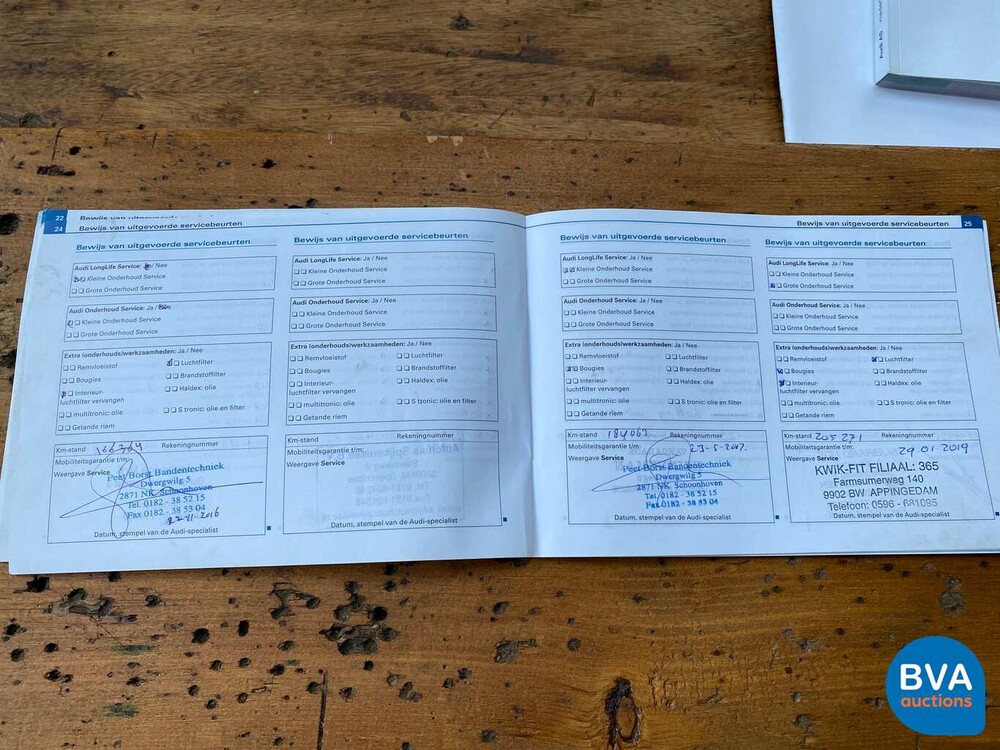 22 Bewijs van uitgevoerde servicebeurten
24 Bewijs van uitgevoerde servicebeurten
Bewijs van uitgevoerde servicebeurten
Audi LongLife Service: Ja / Nee
Kleine Onderhoud Service
Grote Onderhoud Service
Audi Onderhoud Service: Ja / Nee
Kleine Onderhoud Service
Grote Onderhoud Service
Extra (onderhouds)werkzaamheden: Ja / Nee
Remvloeistof Luchtfilter
Bougies Brandstoffilter
Interieur- Haldex: olie
luchtfilter vervangen
multitronic: olie S tronic: olie en filter
Getande riem
Km-stand 166364 Rekeningnummer
Mobiliteitsgarantie t/m:
Weergave Service
Peet Borst Bandentechniek
Dwergwilg 5
2871 NK Schoonhoven
Tel. 0182 - 38 52 15
Fax 0182 - 38 53 04
22-11-2016
Datum, stempel van de Audi-specialist
Bewijs van uitgevoerde servicebeurten
Audi LongLife Service: Ja / Nee
Kleine Onderhoud Service
Grote Onderhoud Service
Audi Onderhoud Service: Ja / Nee
Kleine Onderhoud Service
Grote Onderhoud Service
Extra (onderhouds)werkzaamheden: Ja / Nee
Remvloeistof Luchtfilter
Bougies Brandstoffilter
Interieur- Haldex: olie
luchtfilter vervangen
multitronic: olie S tronic: olie en filter
Getande riem
Km-stand Rekeningnummer
Mobiliteitsgarantie t/m:
Weergave Service
Datum, stempel van de Audi-specialist
Bewijs van uitgevoerde servicebeurten 25
Bewijs van uitgevoerde servicebeurten
Audi LongLife Service: Ja / Nee
Kleine Onderhoud Service
Grote Onderhoud Service
Audi Onderhoud Service: Ja / Nee
Kleine Onderhoud Service
Grote Onderhoud Service
Extra (onderhouds)werkzaamheden: Ja / Nee
Remvloeistof Luchtfilter
Bougies Brandstoffilter
Interieur- Haldex: olie
luchtfilter vervangen
multitronic: olie S tronic: olie en filter
Getande riem
Km-stand 184063 Rekeningnummer
Mobiliteitsgarantie t/m: 23-5-2017.
Weergave Service
Peet Borst Bandentechniek
Dwergwilg 5
2871 NK Schoonhoven
Tel. 0182 - 38 52 15
Fax 0182 - 38 53 04
Datum, stempel van de Audi-specialist
Bewijs van uitgevoerde servicebeurten
Audi LongLife Service: Ja / Nee
Kleine Onderhoud Service
Grote Onderhoud Service
Audi Onderhoud Service: Ja / Nee
Kleine Onderhoud Service
Grote Onderhoud Service
Extra (onderhouds)werkzaamheden: Ja / Nee
Remvloeistof Luchtfilter
Bougies Brandstoffilter
Interieur- Haldex: olie
luchtfilter vervangen
multitronic: olie S tronic: olie en filter
Getande riem
Km-stand 205 271 Rekeningnummer
Mobiliteitsgarantie t/m: 29.01-2019
Weergave Service
KWIK-FIT FILIAAL: 365
Farmsumerweg 140
9902 BW APPINGEDAM
Telefoon: 0596 - 681095
Datum, stempel van de Audi-specialist
BVA
auctions